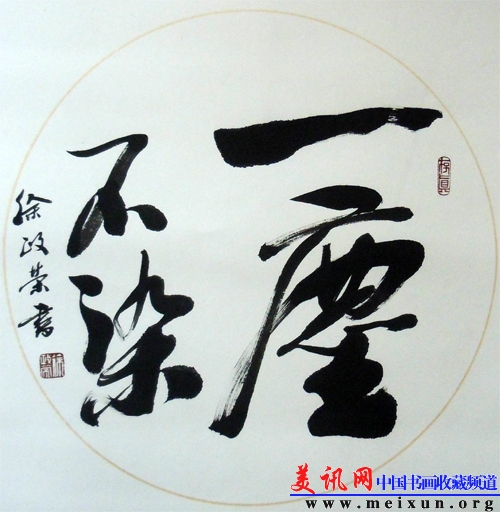 一塵
不染
徐政荣書
存真
美讯网
中国书画收藏频道
www.meixun.org